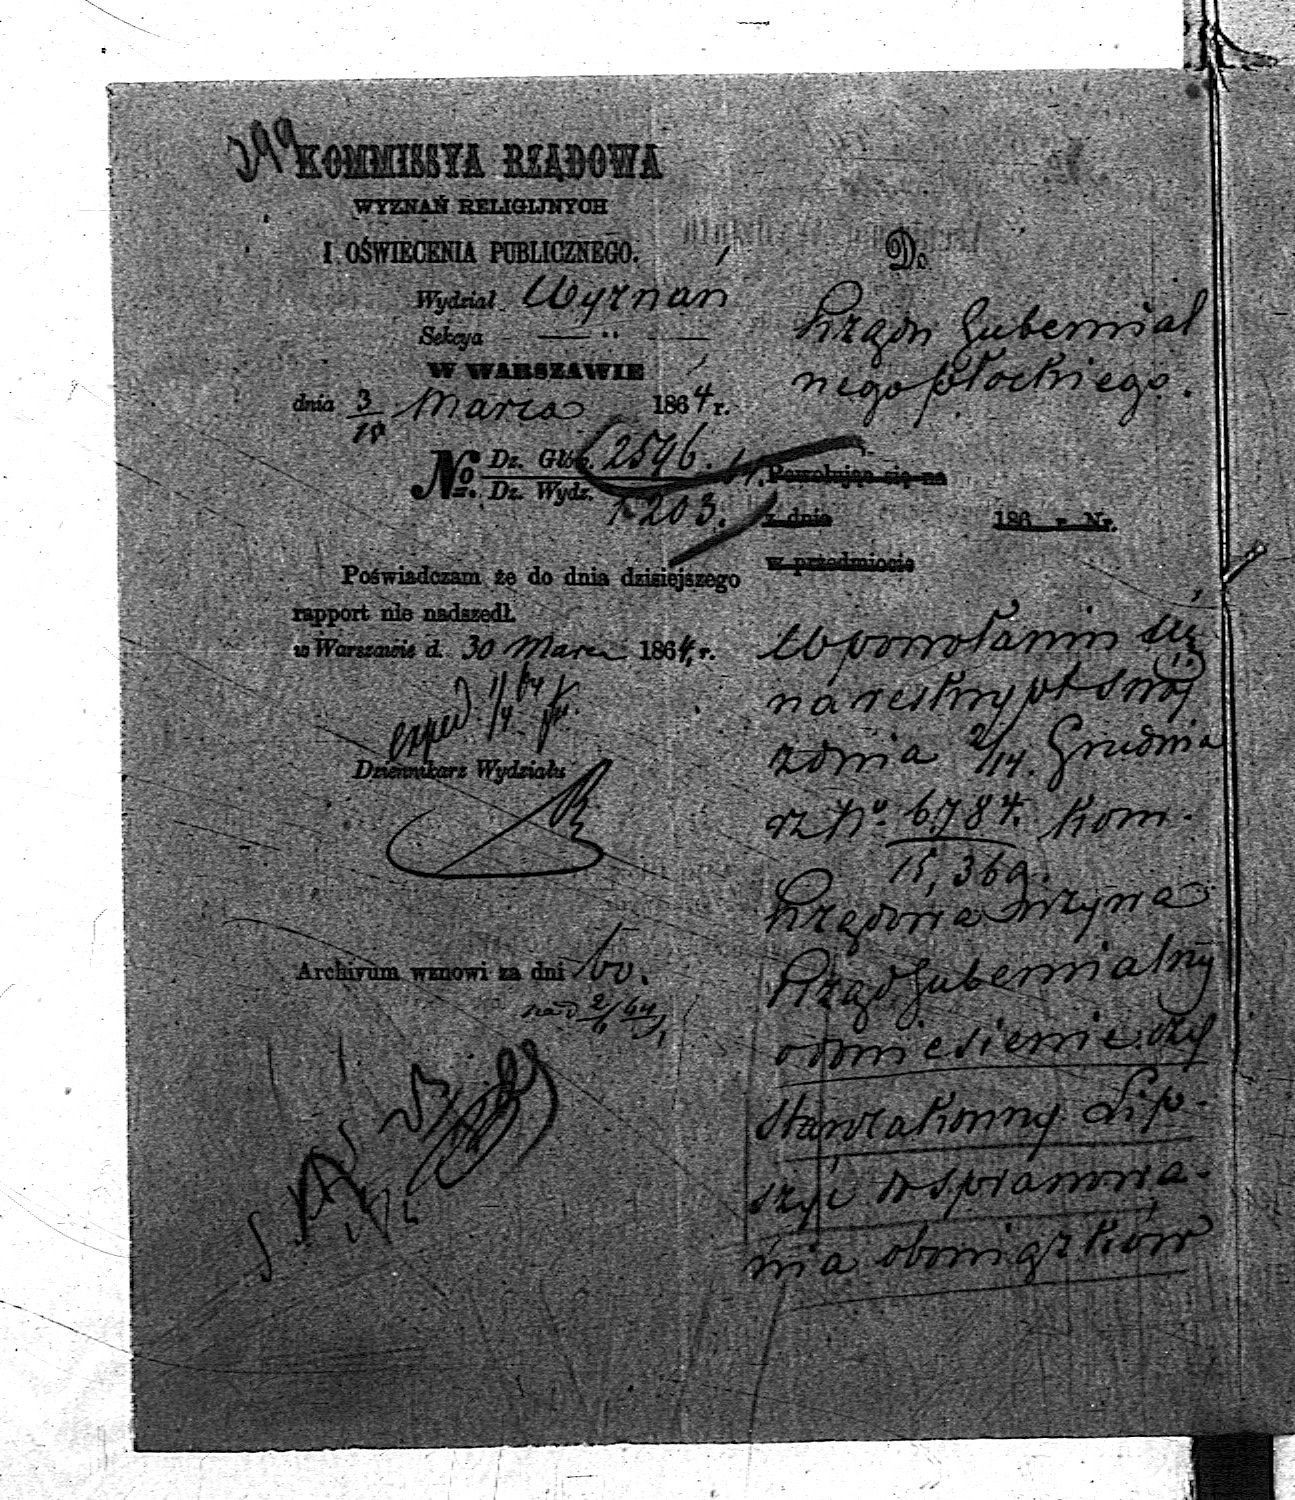 399
KOMMISSYA RZĄDOWA
WYZNAŃ RELIGIJNYCH
I OŚWIECENIA PUBLICZNEGO.
Wydział Wyznań
Sekcya — " —
W WARSZAWIE
dnia 3/15 Marca 1864 r.
No. Dz. Głów. 2596.
Dz. Wydz. 1203.
Poświadczam że do dnia dzisiejszego
rapport nie nadszedł.
w Warszawie d. 30 Marca 1864 r.
exped. 1/4 64
Dziennikarz Wydziału
Archivum wznowi za dni 60.
na d 2/6 64
Do
Rządu Gubernial
nego Płockiego.
Powołując się na
z dnia 186 r. Nr.
w przedmiocie
W powołaniu się
na reskrypt swój
z dnia 2/14 Grudnia
rz No. 6784. Kom.
15,369.
Rządowa wzywa
Rząd Gubernialny
o doniesienie czy
Starozakonny Lip-
szyc do sprawowa-
nia obowiązków